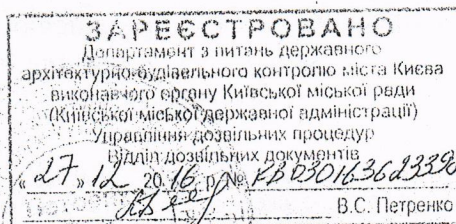 ЗАРЕЄСТРОВАНО
Департамент з питань державного
архітектурно-будівельного контролю міста Києва
виконавчого органу Київської міської ради
(Київської міської державної адміністрації)
Управління дозвільних процедур
Відділ дозвільних документів
«27» 12 2016 р. №
В.С. Петренко